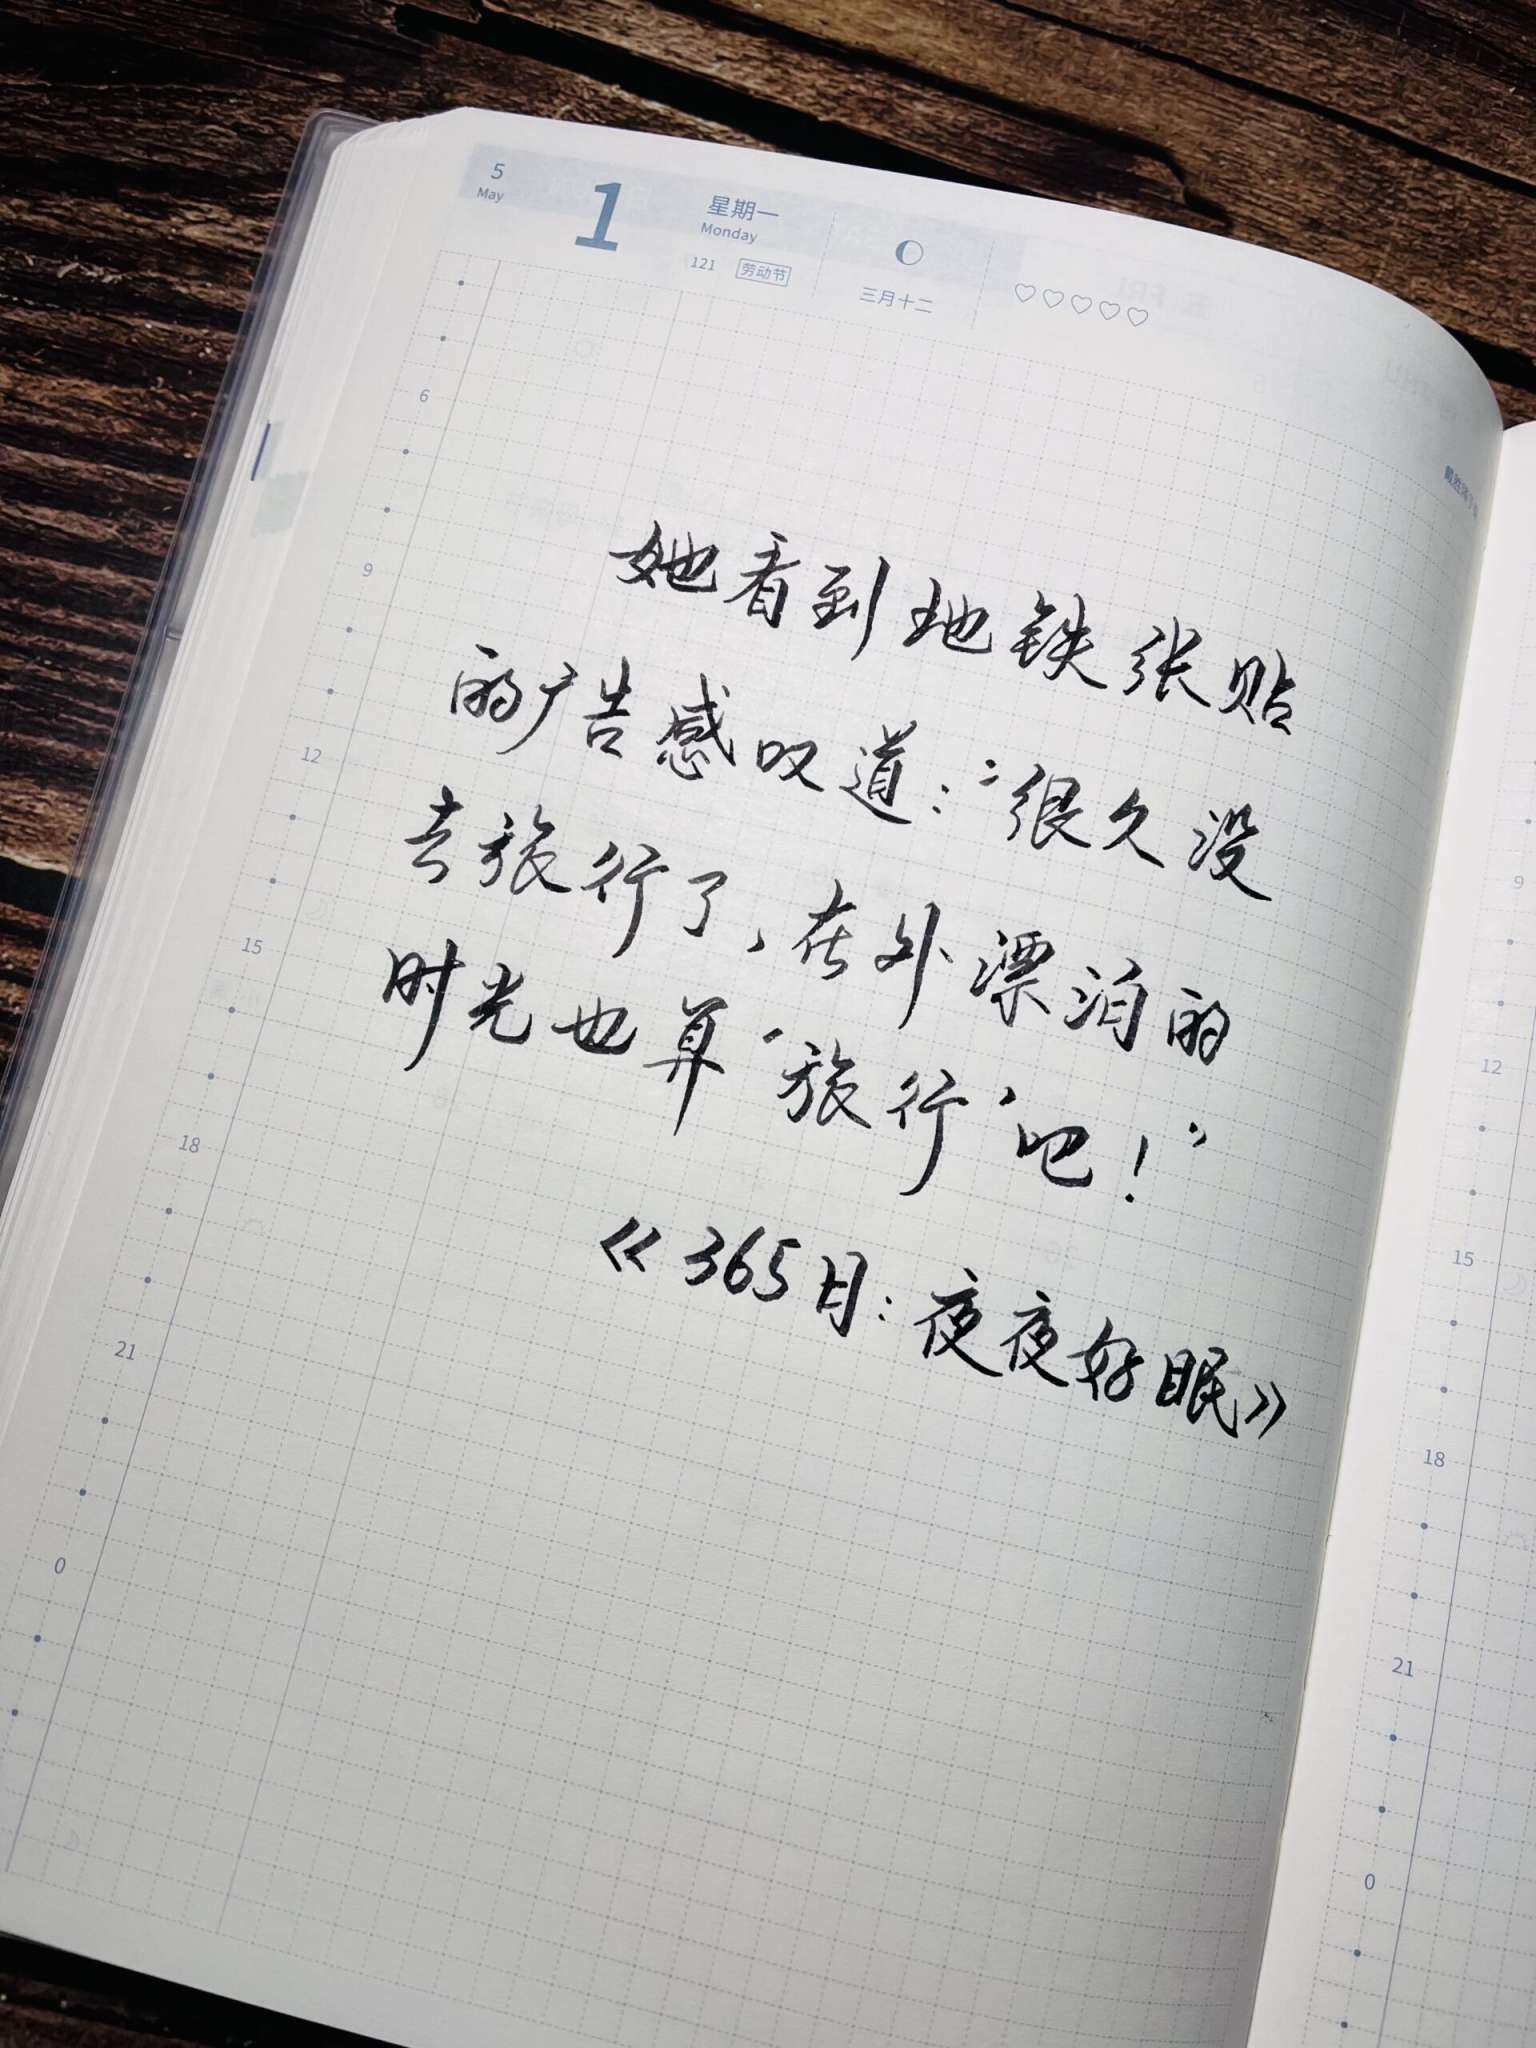 5
May
1
星期一
Monday
121 劳动节
三月十二
6
9
12
15
18
21
0
她看到地铁张贴
的广告感叹道：“很久没
去旅行了，在外漂泊的
时光也算‘旅行’吧！”
《365日：夜夜好眠》
9
12
15
18
21
0